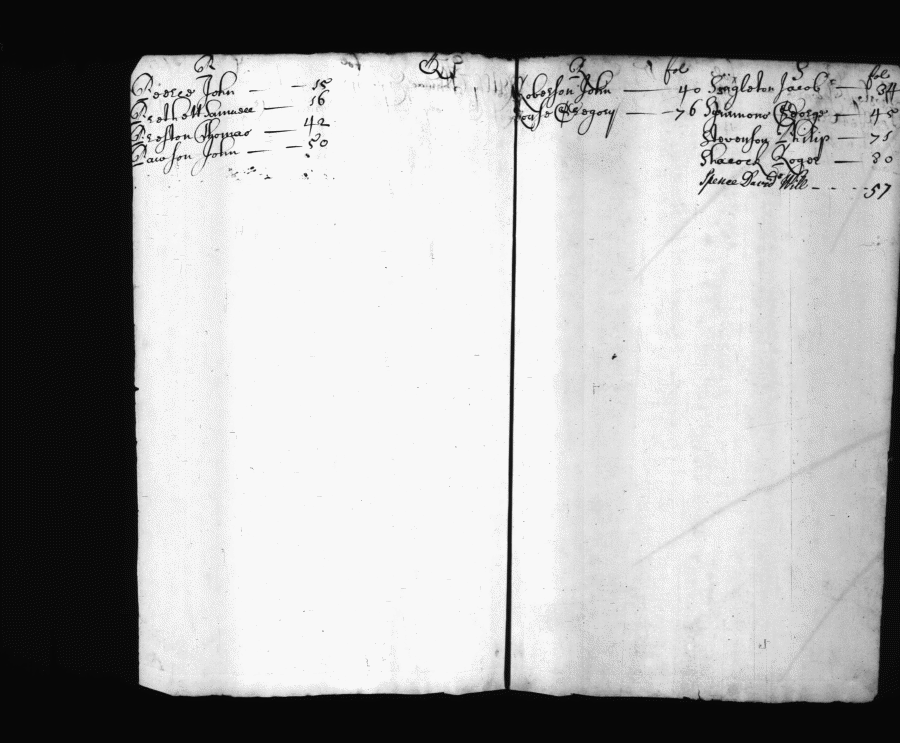 P
Peerce John — 15
Prethett Samuell — 16
Preston Thomas — 42
Pawson John — 50
Q
R fol
Roberson John — 40
Rouse Gregory — 76
S fol
Singleton Jacob — 34
Simmons George — 45
Stevenson Philip — 75
Sharock Roger — 80
Spence David Will - - - 57